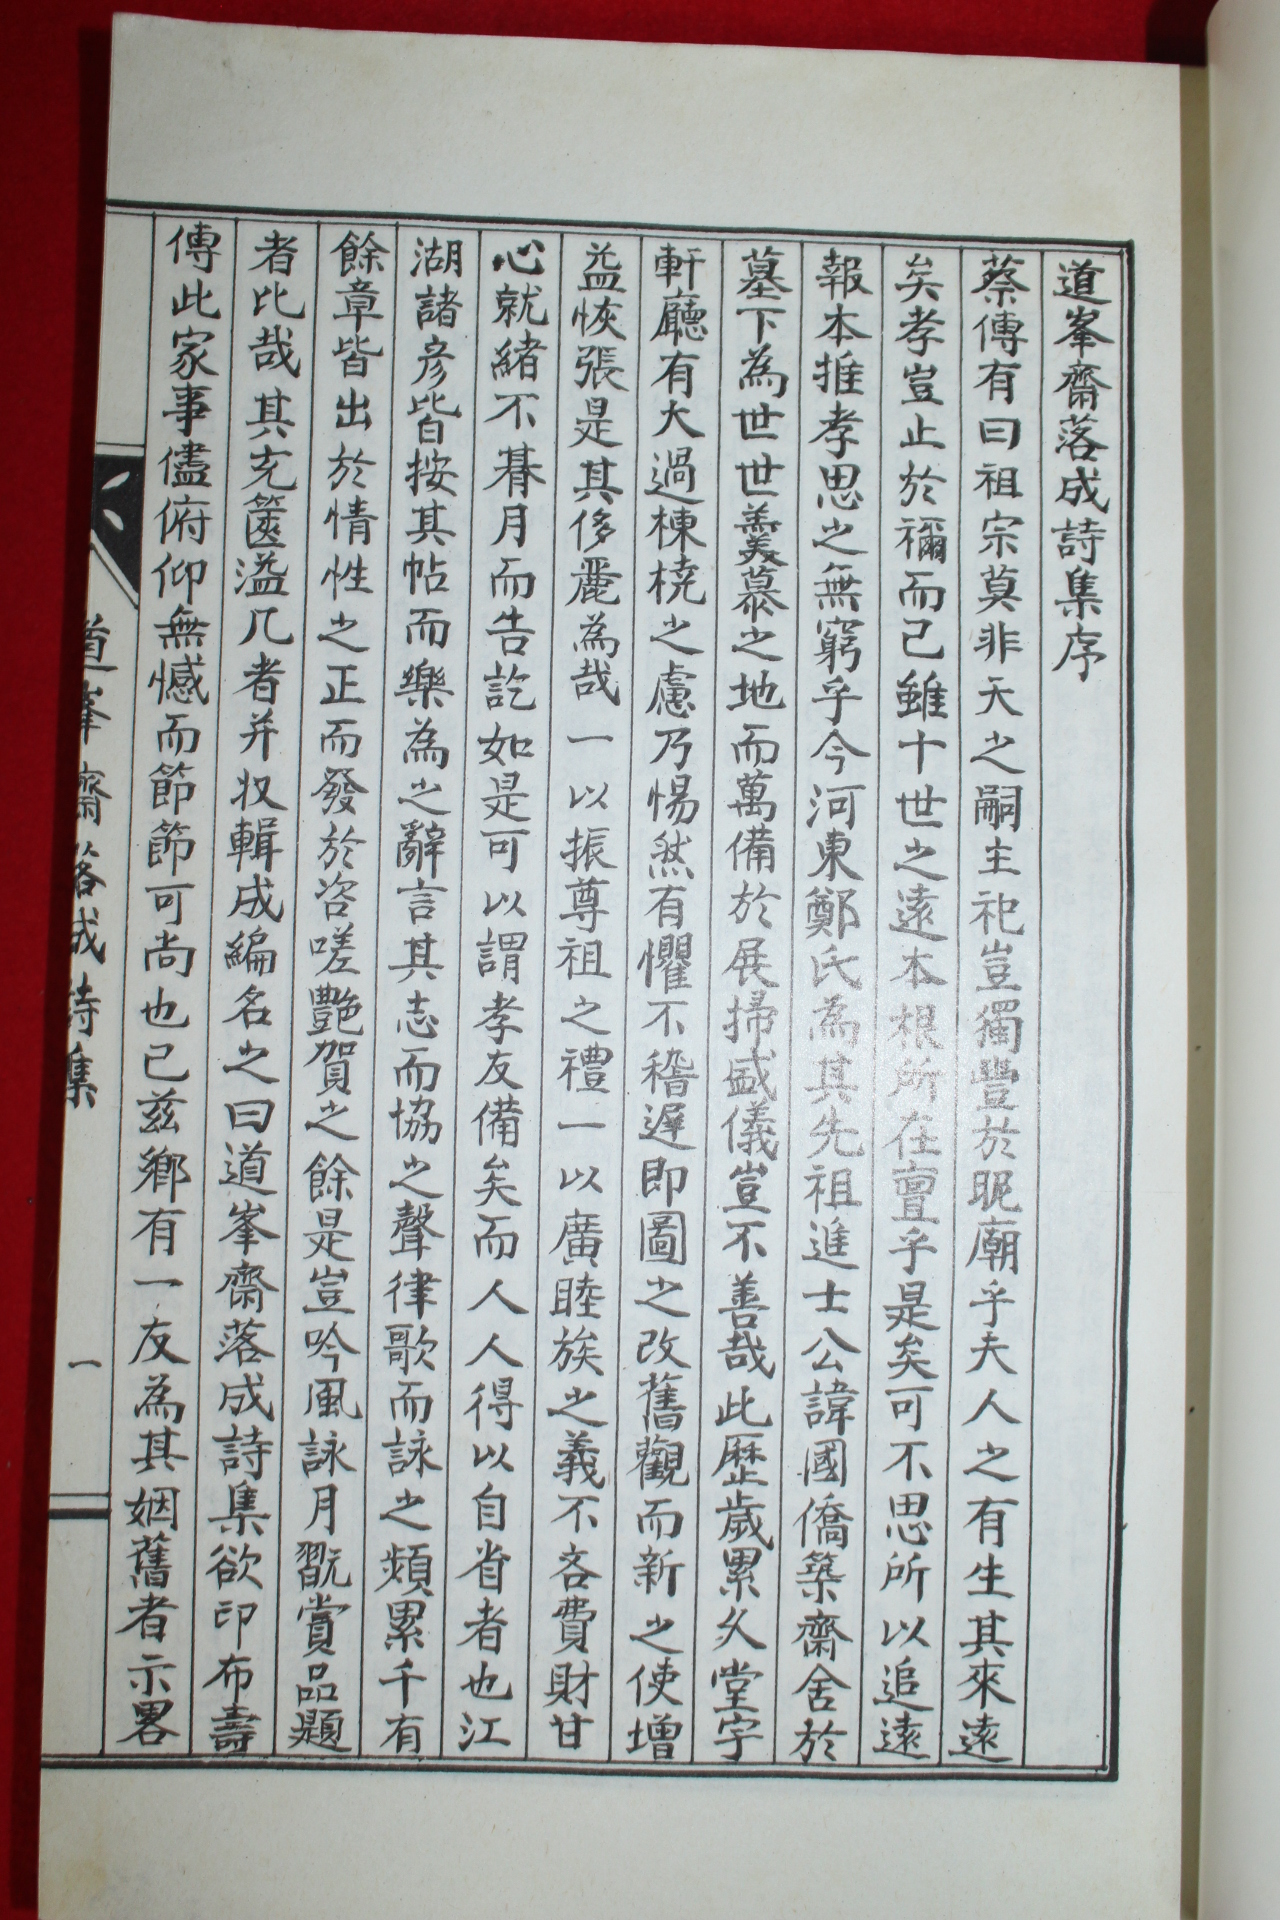 道峯齋落成詩集序
蔡傳有曰祖宗莫非天之嗣主祀豈獨豐於昵廟乎夫人之有生其來遠
矣孝豈止於禰而已雖十世之遠本根所在亶乎是矣可不思所以追遠
報本推孝思之無窮乎今河東鄭氏為其先祖進士公諱國僑築齋舍於
墓下為世世羹慕之地而萬備於展掃盛儀豈不善哉此歷歲累久堂宇
軒廳有大過棟橈之慮乃惕然有懼不稽遲即圖之改舊觀而新之使增
益恢張是其侈麗為哉一以振尊祖之禮一以廣睦族之義不吝費財甘
心就緒不朞月而告訖如是可以謂孝友備矣而人人得以自省者也江
湖諸彦皆按其帖而樂為之辭言其志而協之聲律歌而詠之頻累千有
餘章皆出於情性之正而發於咨嗟艷賀之餘是豈吟風詠月翫賞品題
者比哉其充篋溢几者并収輯成編名之曰道峯齋落成詩集欲印布壽
傳此家事儘俯仰無憾而節節可尚也已茲鄉有一友為其姻舊者示畧
道峯齋落成詩集
一